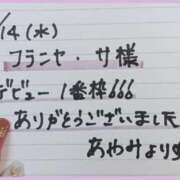 /14(水)
フラニャ・サ様
デビュー1番枠666
ありがとうございました
あわみより